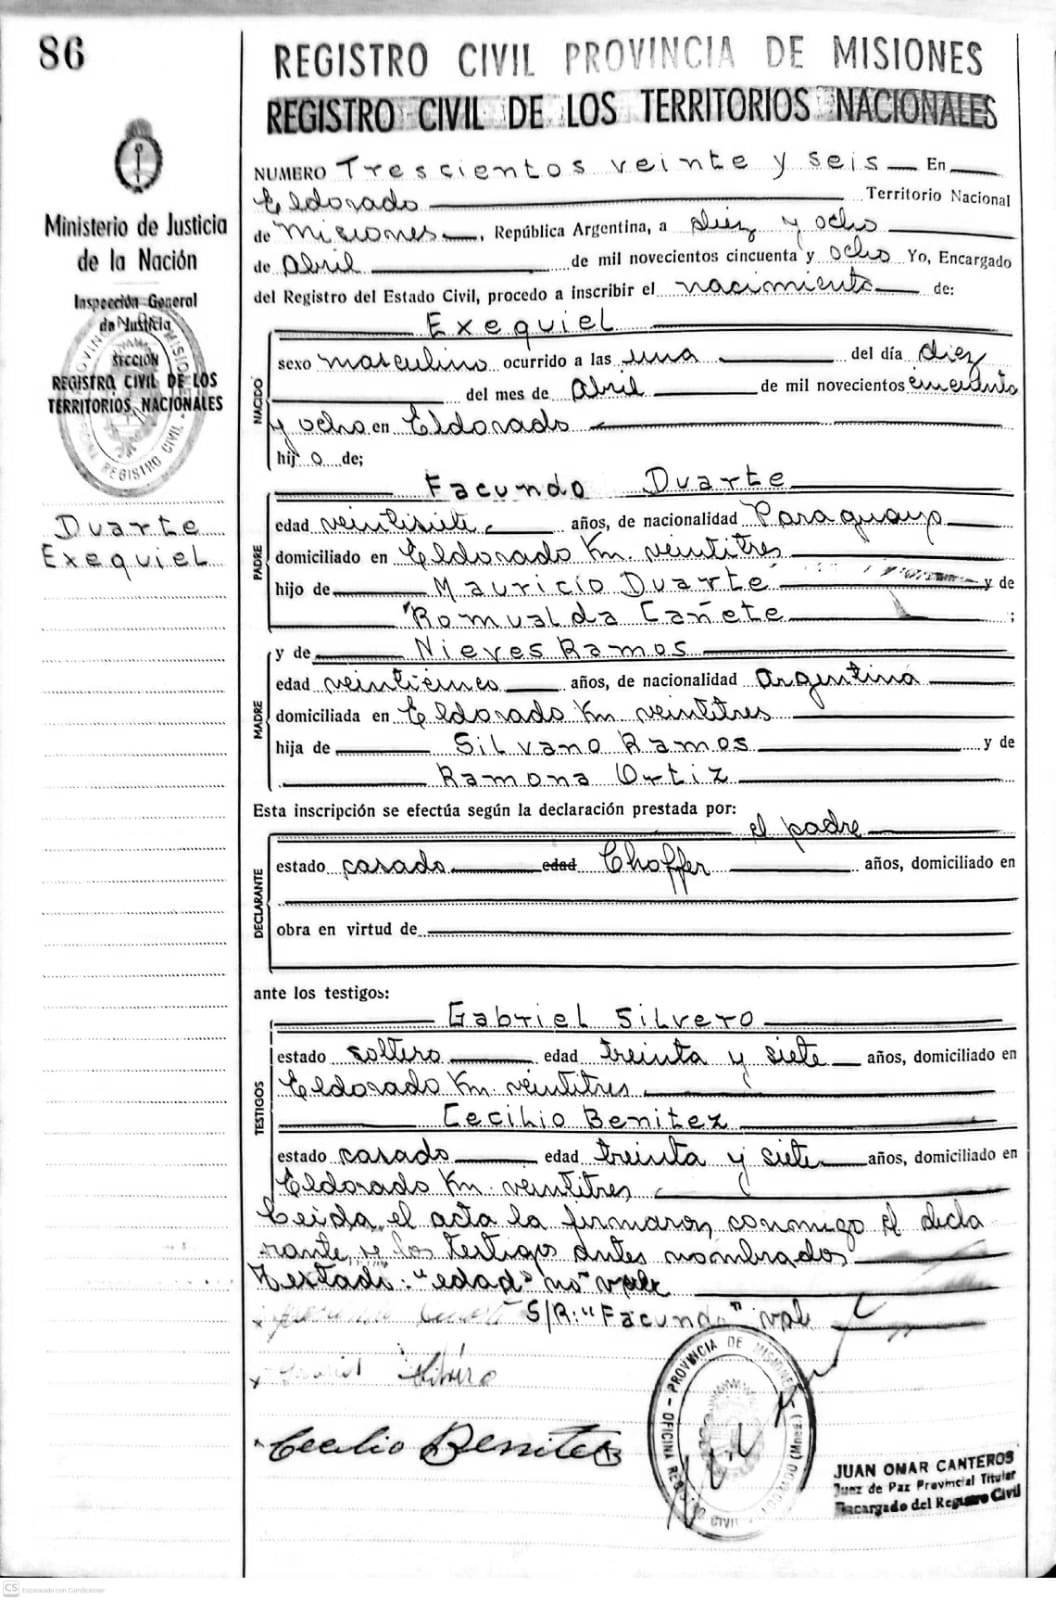 86
REGISTRO CIVIL PROVINCIA DE MISIONES
REGISTRO CIVIL DE LOS TERRITORIOS NACIONALES
Ministerio de Justicia
de la Nación
Inspección General
de Justicia
SECCIÓN
REGISTRO CIVIL DE LOS
TERRITORIOS NACIONALES
Duarte
Exequiel
NUMERO Trescientos veinte y seis En
Eldorado Territorio Nacional
de Misiones, República Argentina, a diez y ocho
de Abril de mil novecientos cincuenta y ocho Yo, Encargado
del Registro del Estado Civil, procedo a inscribir el nacimiento de:
NACIDO
Exequiel
sexo masculino ocurrido a las una del día diez
del mes de Abril de mil novecientos cincuenta
y ocho en Eldorado
hijo de;
PADRE
Facundo Duarte
edad veintisiete años, de nacionalidad Paraguayo
domiciliado en Eldorado Km. veintitres
hijo de Mauricio Duarte y de
Romualda Cañete ;
MADRE
y de Nieves Ramos
edad veinticinco años, de nacionalidad Argentina
domiciliada en Eldorado Km veintitres
hija de Silvano Ramos y de
Ramona Ortiz
Esta inscripción se efectúa según la declaración prestada por:
DECLARANTE
el padre
estado casado edad Choffer años, domiciliado en
obra en virtud de
ante los testigos:
TESTIGOS
Gabriel Silvero
estado soltero edad treinta y siete años, domiciliado en
Eldorado Km. veintitres
Cecilio Benitez
estado casado edad treinta y siete años, domiciliado en
Eldorado Km. veintitres
Leida el acta la firmaron conmigo el decla
rante y los testigos antes nombrados
Textado: "edad" no "vale
S/R: "Facundo" vale
Silvero
Cecilio Benitez
PROVINCIA DE MISIONES
OFICINA REGISTRO CIVIL
JUAN OMAR CANTEROS
Juez de Paz Provincial Titular
Encargado del Registro Civil
CS Escaneado con CamScanner